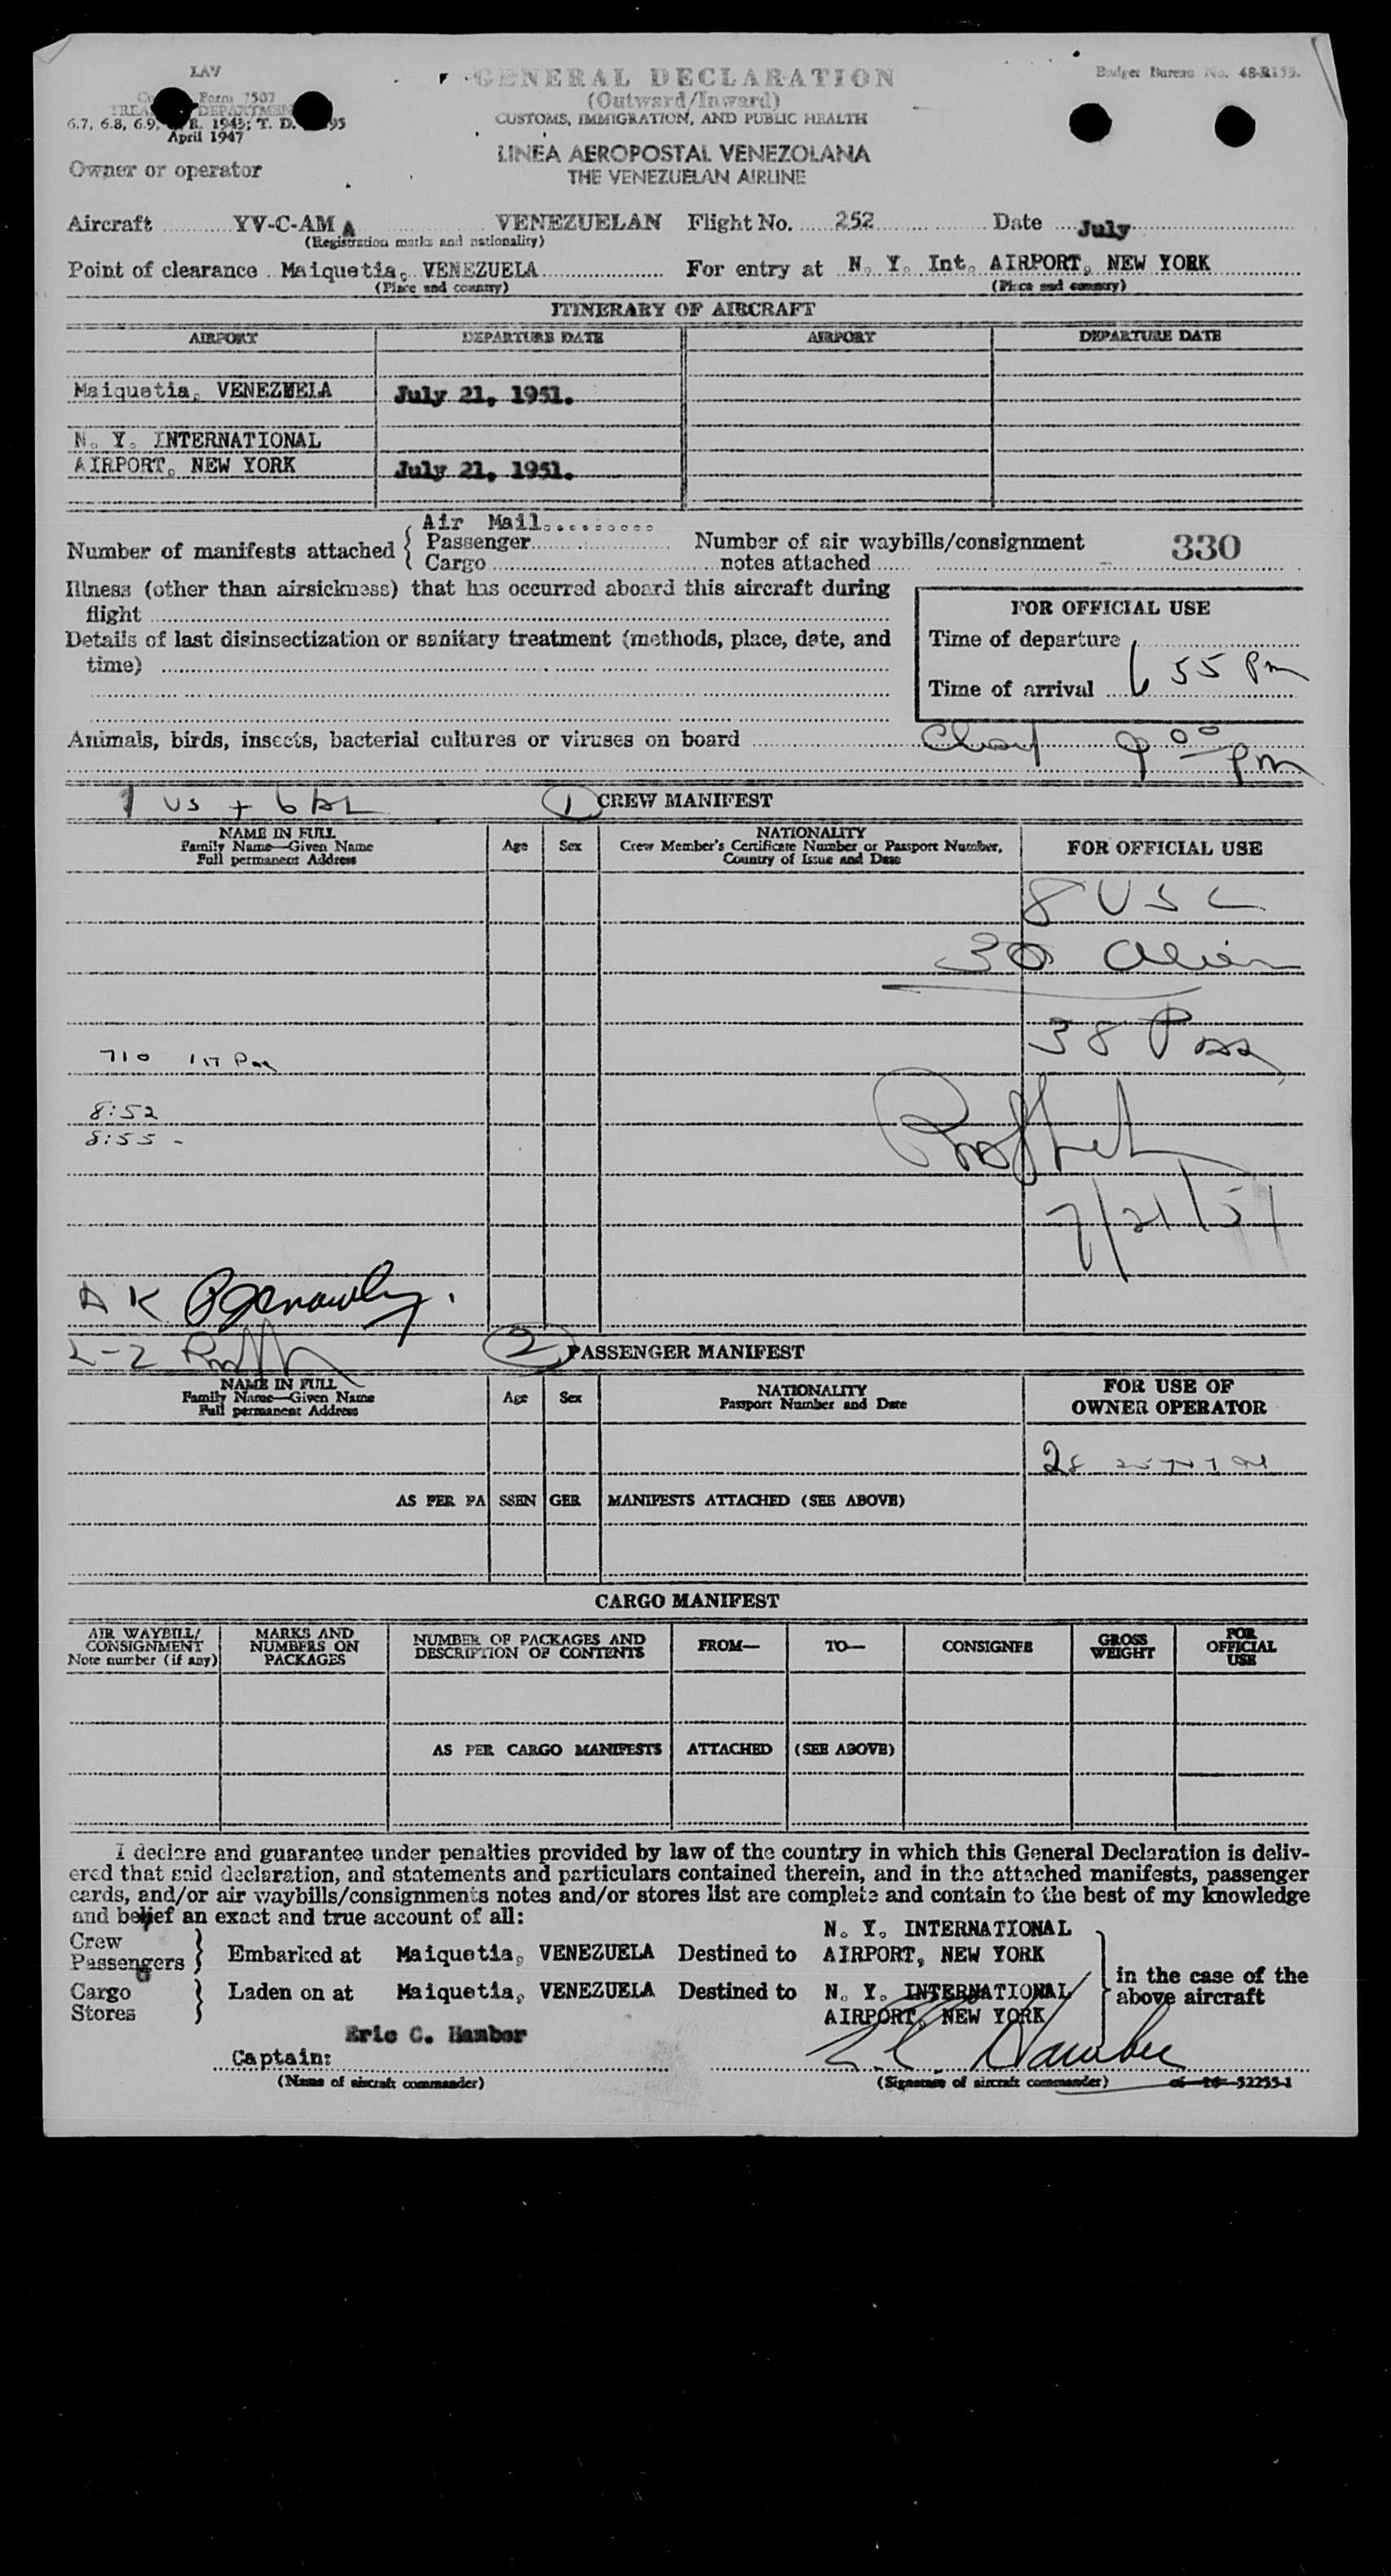 LAV
Form 7507
GENERAL DECLARATION
Budget Bureau No. 48-R155.
(Outward/Inward)
TREA DEPARTMEN
CUSTOMS, IMMIGRATION, AND PUBLIC HEALTH
6.7, 6.8, 6.9, R. 1945; T. D. 95
April 1947
LINEA AEROPOSTAL VENEZOLANA
THE VENEZUELAN AIRLINE
Owner or operator
Aircraft YV-C-AMA VENEZUELAN Flight No. 252 Date July
(Registration marks and nationality)
Point of clearance Maiquetia, VENEZUELA For entry at N. Y. Int. AIRPORT, NEW YORK
(Place and country) (Place and country)
ITINERARY OF AIRCRAFT
AIRPORT DEPARTURE DATE AIRPORT DEPARTURE DATE
Maiquetia, VENEZUELA July 21, 1951.
N. Y. INTERNATIONAL
AIRPORT, NEW YORK July 21, 1951.
Air Mail.........
Number of manifests attached { Passenger Number of air waybills/consignment 330
Cargo notes attached
Illness (other than airsickness) that has occurred aboard this aircraft during
flight
FOR OFFICIAL USE
Details of last disinsectization or sanitary treatment (methods, place, date, and
time)
Time of departure
Time of arrival 6 55 Pm
Animals, birds, insects, bacterial cultures or viruses on board
9 00 pm
1 US + 6 AL
1 CREW MANIFEST
NAME IN FULL
Family Name—Given Name
Full permanent Address
Age Sex
NATIONALITY
Crew Member's Certificate Number or Passport Number,
Country of Issue and Date
FOR OFFICIAL USE
8 USC
30 Alien
38 Pass
710 1st Pas
8:52
8:55 -
7/21/51
2 PASSENGER MANIFEST
NAME IN FULL
Family Name—Given Name
Full permanent Address
Age Sex
NATIONALITY
Passport Number and Date
FOR USE OF
OWNER OPERATOR
AS PER PASSENGER MANIFESTS ATTACHED (SEE ABOVE)
CARGO MANIFEST
AIR WAYBILL/
CONSIGNMENT
Note number (if any)
MARKS AND
NUMBERS ON
PACKAGES
NUMBER OF PACKAGES AND
DESCRIPTION OF CONTENTS
FROM— TO— CONSIGNEE
GROSS
WEIGHT
FOR
OFFICIAL
USE
AS PER CARGO MANIFESTS ATTACHED (SEE ABOVE)
I declare and guarantee under penalties provided by law of the country in which this General Declaration is deliv-
ered that said declaration, and statements and particulars contained therein, and in the attached manifests, passenger
cards, and/or air waybills/consignments notes and/or stores list are complete and contain to the best of my knowledge
and belief an exact and true account of all:
N. Y. INTERNATIONAL
Crew
Passengers } Embarked at Maiquetia, VENEZUELA Destined to AIRPORT, NEW YORK
in the case of the
above aircraft
Cargo
Stores } Laden on at Maiquetia, VENEZUELA Destined to N. Y. INTERNATIONAL
AIRPORT, NEW YORK
Eric C. Hamber
Captain: E. C. Hamber
(Name of aircraft commander) (Signature of aircraft commander) 52255-1